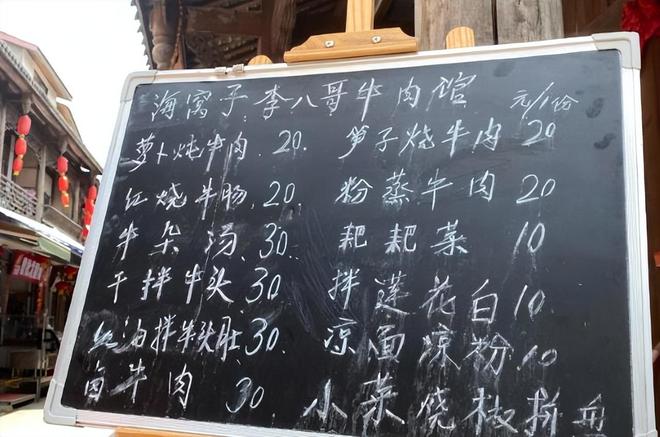 海窝子李八哥牛肉馆 元/份
萝卜炖牛肉 20. 笋子烧牛肉 20
红烧牛肠 20. 粉蒸牛肉 20
牛杂汤 30. 耙耙菜 10
干拌牛头 30 拌莲花白 10
红油拌牛头肚 30. 凉面凉粉 10
卤牛肉 30 小菜烧椒拼